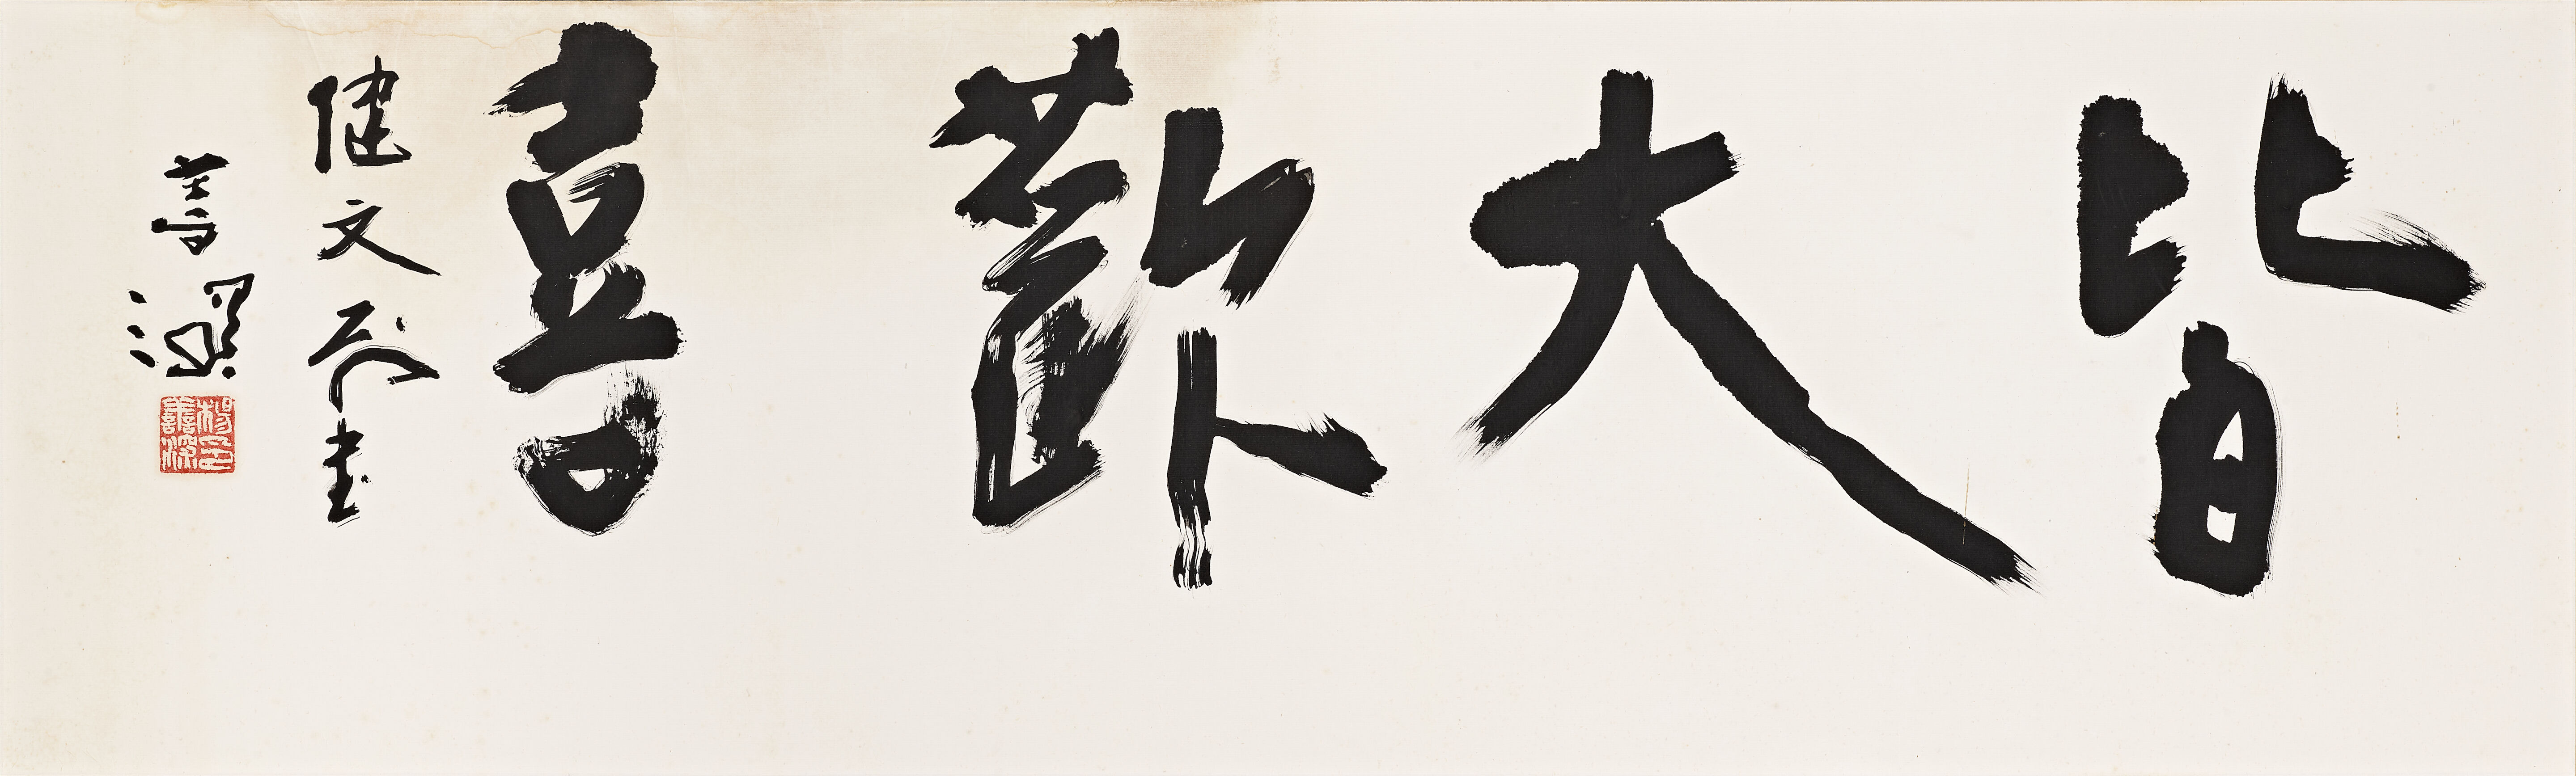 皆大歡喜
健文書
善深
楊印善深